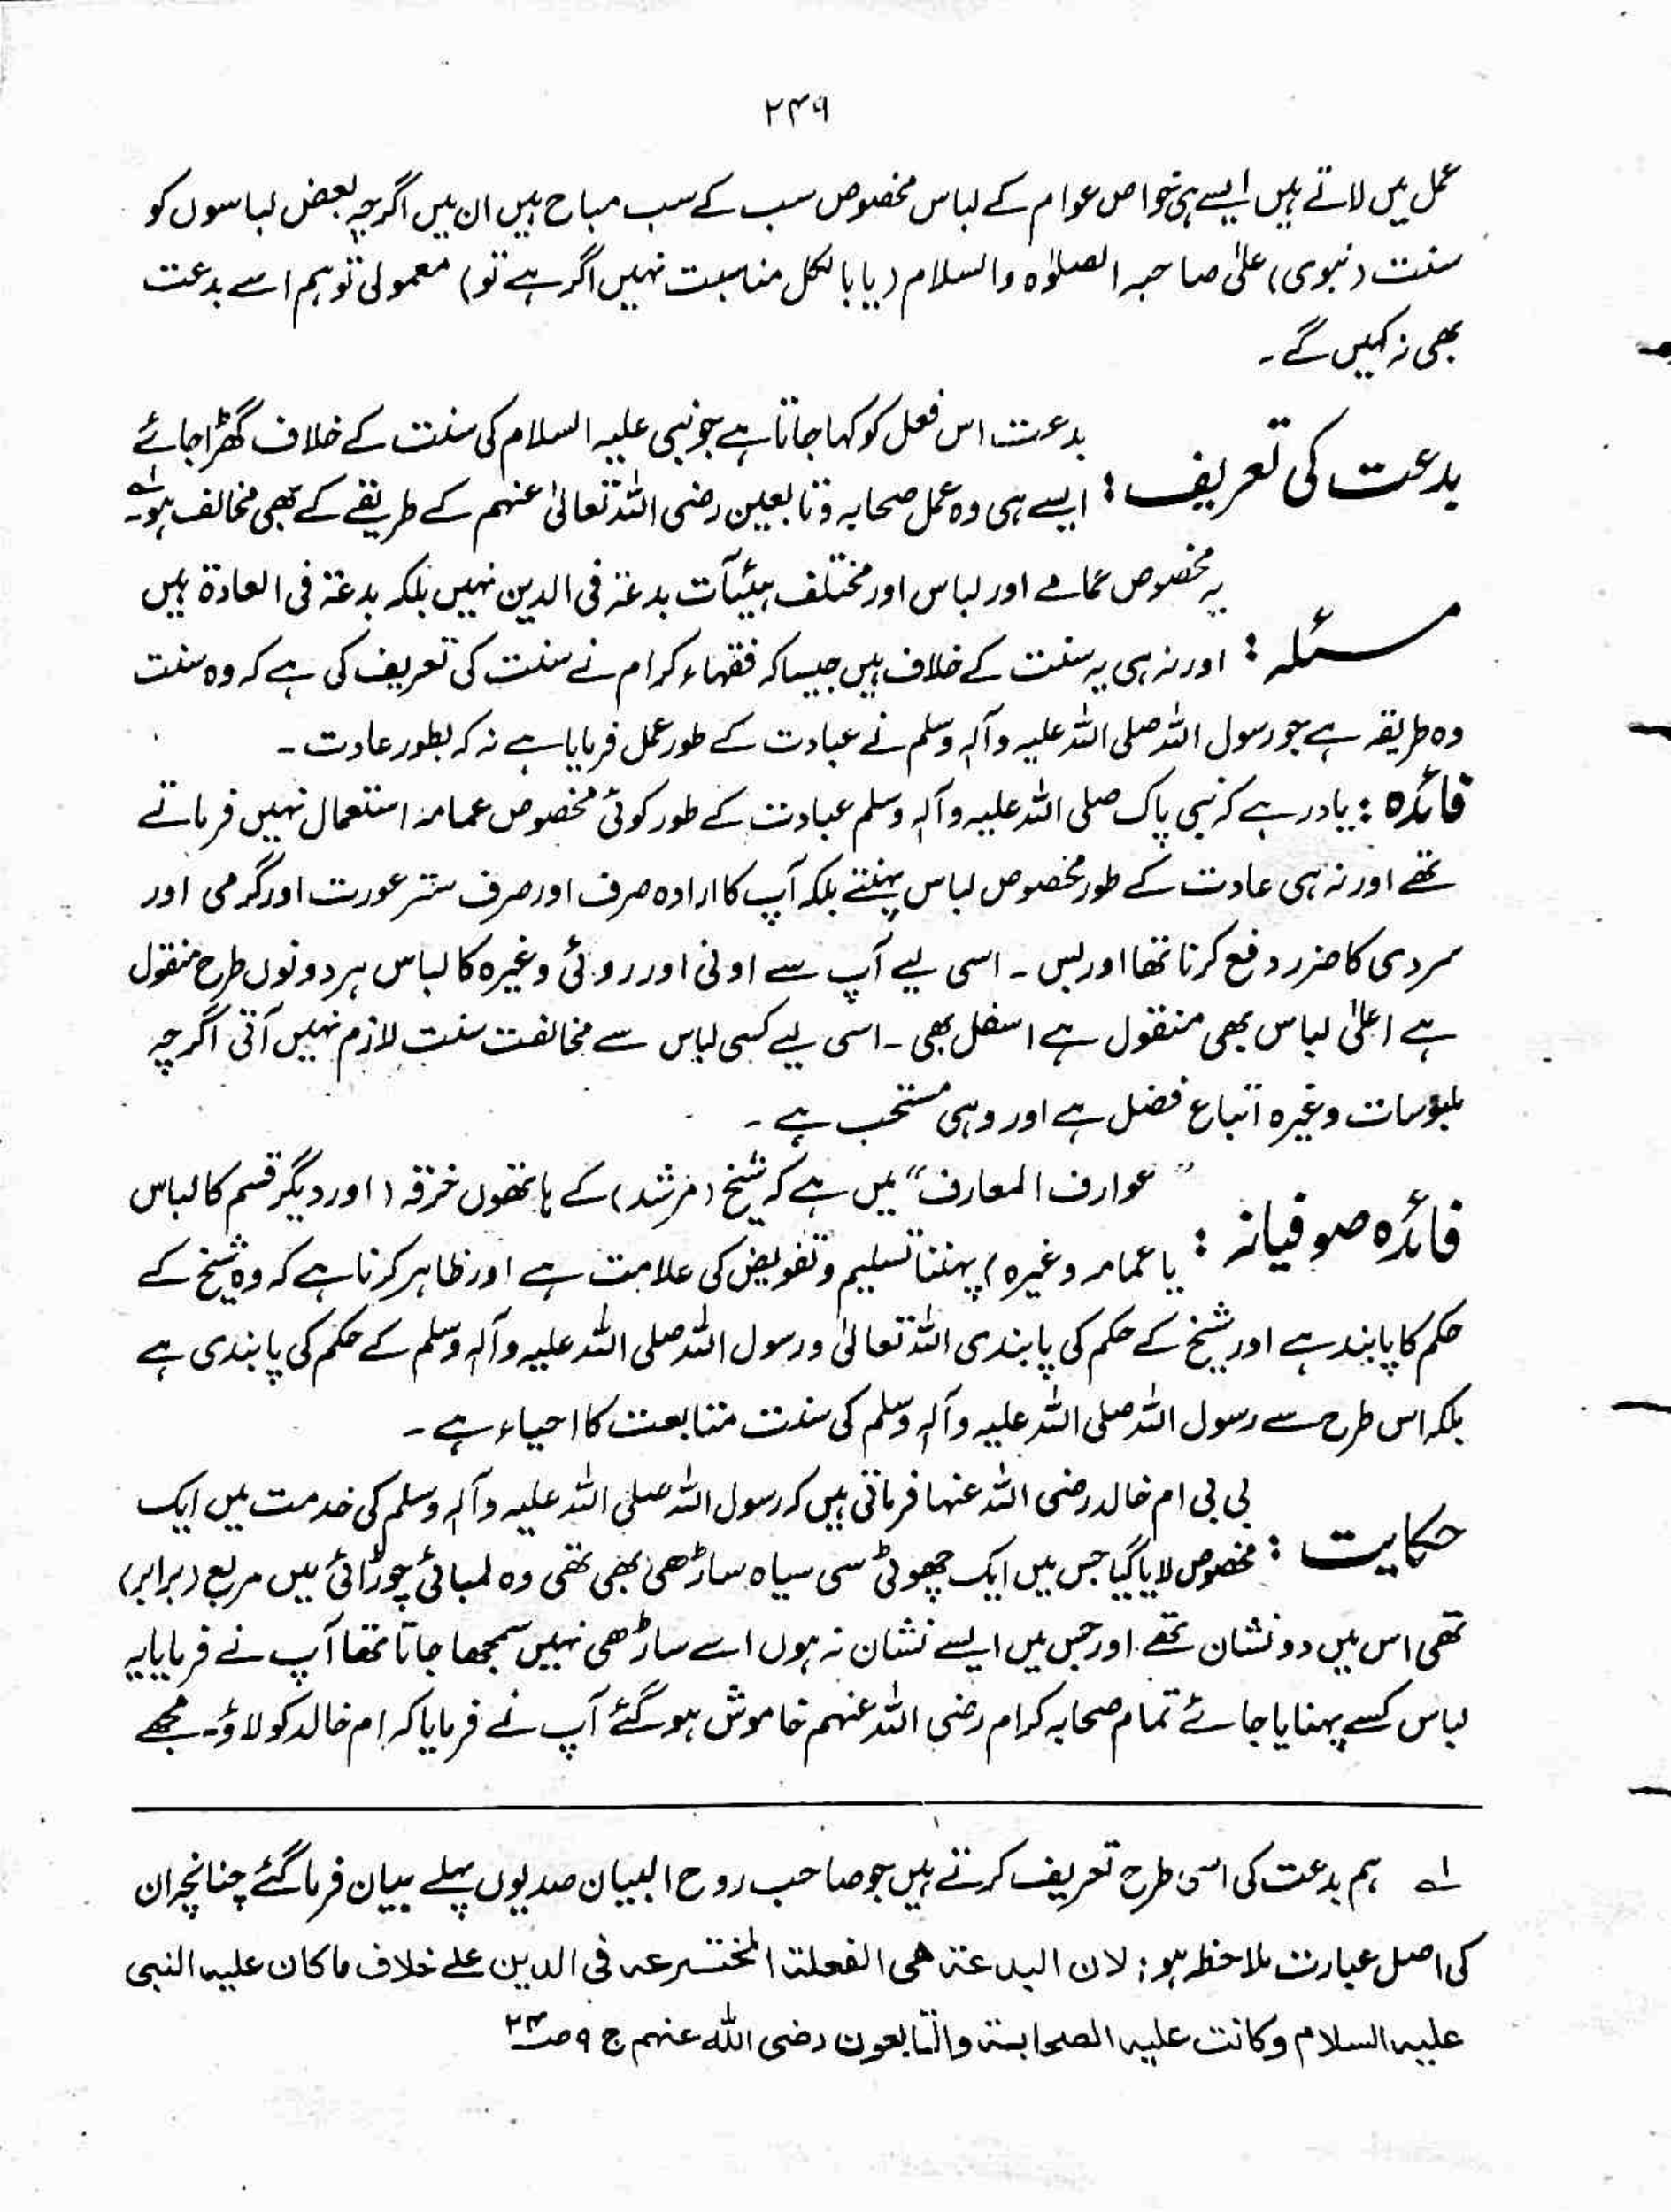 ۲۴۹
عمل میں لاتے ہیں ایسے ہی خواص عوام کے لباس مخصوص سب کے سب مباح ہیں ان میں اگرچہ بعض لباسوں کو
سنت (نبوی) علیٰ صاحبہ الصلوٰۃ والسلام (یا بالکل مناسبت نہیں اگر ہے تو) معمولی تو ہم اسے بدعت
بھی نہ کہیں گے۔
بدعت کی تعریف : بدعت اس فعل کو کہا جاتا ہے جو نبی علیہ السلام کی سنت کے خلاف گھڑا جائے
ایسے ہی وہ عمل صحابہ و تابعین رضی اللہ تعالیٰ عنہم کے طریقے کے بھی مخالف ہو۔ لہ
مسئلہ : یہ مخصوص عمامے اور لباس اور مختلف ہیئیآت بدعۃ فی الدین نہیں بلکہ بدعۃ فی العادۃ ہیں
اور نہ ہی یہ سنت کے خلاف ہیں جیسا کہ فقہاء کرام نے سنت کی تعریف کی ہے کہ وہ سنت
وہ طریقہ ہے جو رسول اللہ صلی اللہ علیہ وآلہ وسلم نے عبادت کے طور عمل فرمایا ہے نہ کہ بطور عادت۔
فائدہ : یاد رہے کہ نبی پاک صلی اللہ علیہ وآلہ وسلم عبادت کے طور کوئی مخصوص عمامہ استعمال نہیں فرماتے
تھے اور نہ ہی عادت کے طور مخصوص لباس پہنتے بلکہ آپ کا ارادہ صرف اور صرف ستر عورت اور گرمی اور
سردی کا ضرر دفع کرنا تھا اور بس۔ اسی لیے آپ سے اونی اور روئی وغیرہ کا لباس ہر دونوں طرح منقول
ہے اعلیٰ لباس بھی منقول ہے اسفل بھی۔ اسی لیے کسی لباس سے مخالفت سنت لازم نہیں آتی اگرچہ
ملبوسات وغیرہ اتباع فضل ہے اور وہی مستحب ہے۔
فائدہ صوفیانہ : "عوارف المعارف" میں ہے کہ شیخ (مرشد) کے ہاتھوں خرقہ (اور دیگر قسم کا لباس
یا عمامہ وغیرہ) پہننا تسلیم و تفویض کی علامت ہے اور ظاہر کرنا ہے کہ وہ شیخ کے
حکم کا پابند ہے اور شیخ کے حکم کی پابندی اللہ تعالیٰ و رسول اللہ صلی اللہ علیہ وآلہ وسلم کے حکم کی پابندی ہے
بلکہ اس طرح سے رسول اللہ صلی اللہ علیہ وآلہ وسلم کی سنت متابعت کا احیاء ہے۔
حکایت : بی بی ام خالد رضی اللہ عنہا فرماتی ہیں کہ رسول اللہ صلی اللہ علیہ وآلہ وسلم کی خدمت میں ایک
مخصوص لایا گیا جس میں ایک چھوٹی سی سیاہ ساڑھی بھی تھی وہ لمبائی چوڑائی میں مربع (برابر)
تھی اس میں دو نشان تھے اور جس میں ایسے نشان نہ ہوں اسے ساڑھی نہیں سمجھا جاتا تھا آپ نے فرمایا یہ
لباس کسے پہنایا جائے تمام صحابہ کرام رضی اللہ عنہم خاموش ہو گئے آپ نے فرمایا کہ ام خالد کو لاؤ۔ مجھے
لہ ہم بدعت کی اسی طرح تعریف کرتے ہیں جو صاحب روح البیان صدیوں پہلے بیان فرما گئے چنانچہ ان
کی اصل عبارت ملاحظہ ہو: لان البدعۃ ھی الفعلۃ المخترعہ فی الدین علے خلاف ما کان علیہ النبی
علیہ السلام وکانت علیہ الصحابۃ والتابعون رضی اللہ عنہم ج ۹ ص۲۴